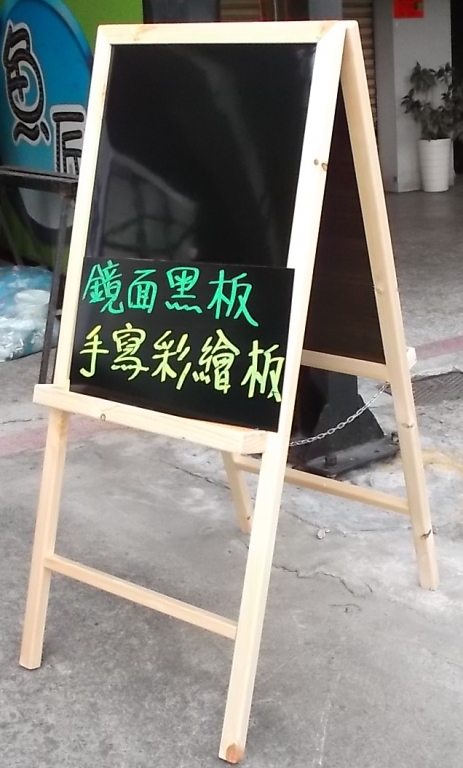 鏡面黑板
手寫彩繪板